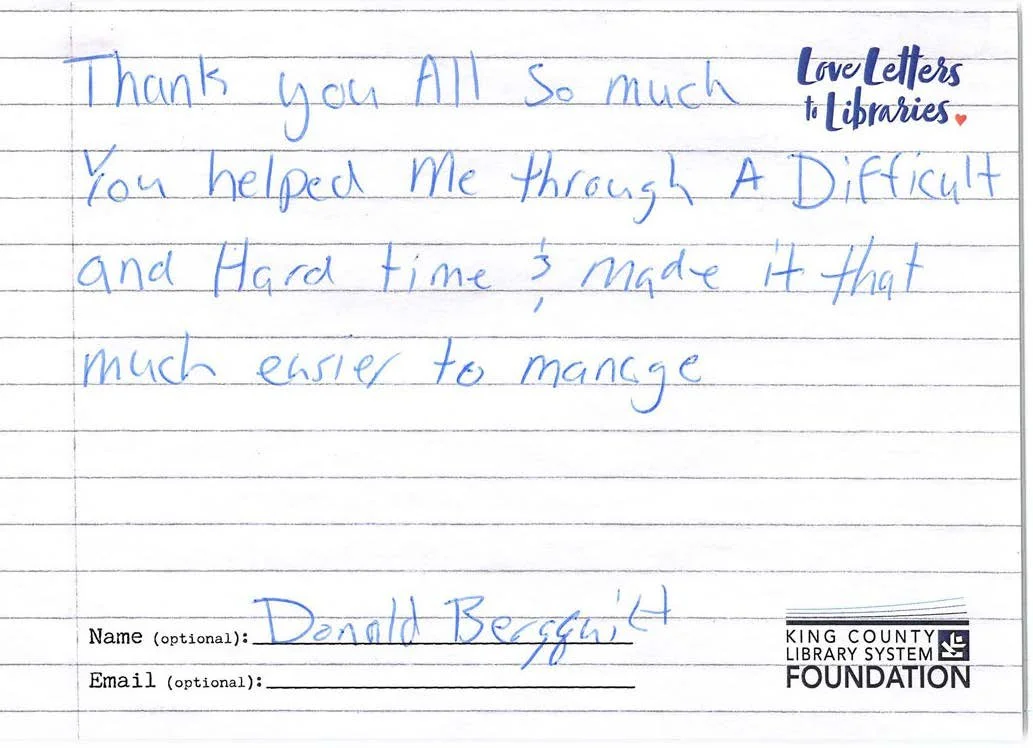 Thank you All So much
Love Letters
to Libraries
You helped Me through A Difficult
and Hard time & made it that
much easier to manage
Name (optional): Donald
Email (optional):
KING COUNTY
LIBRARY SYSTEM
FOUNDATION